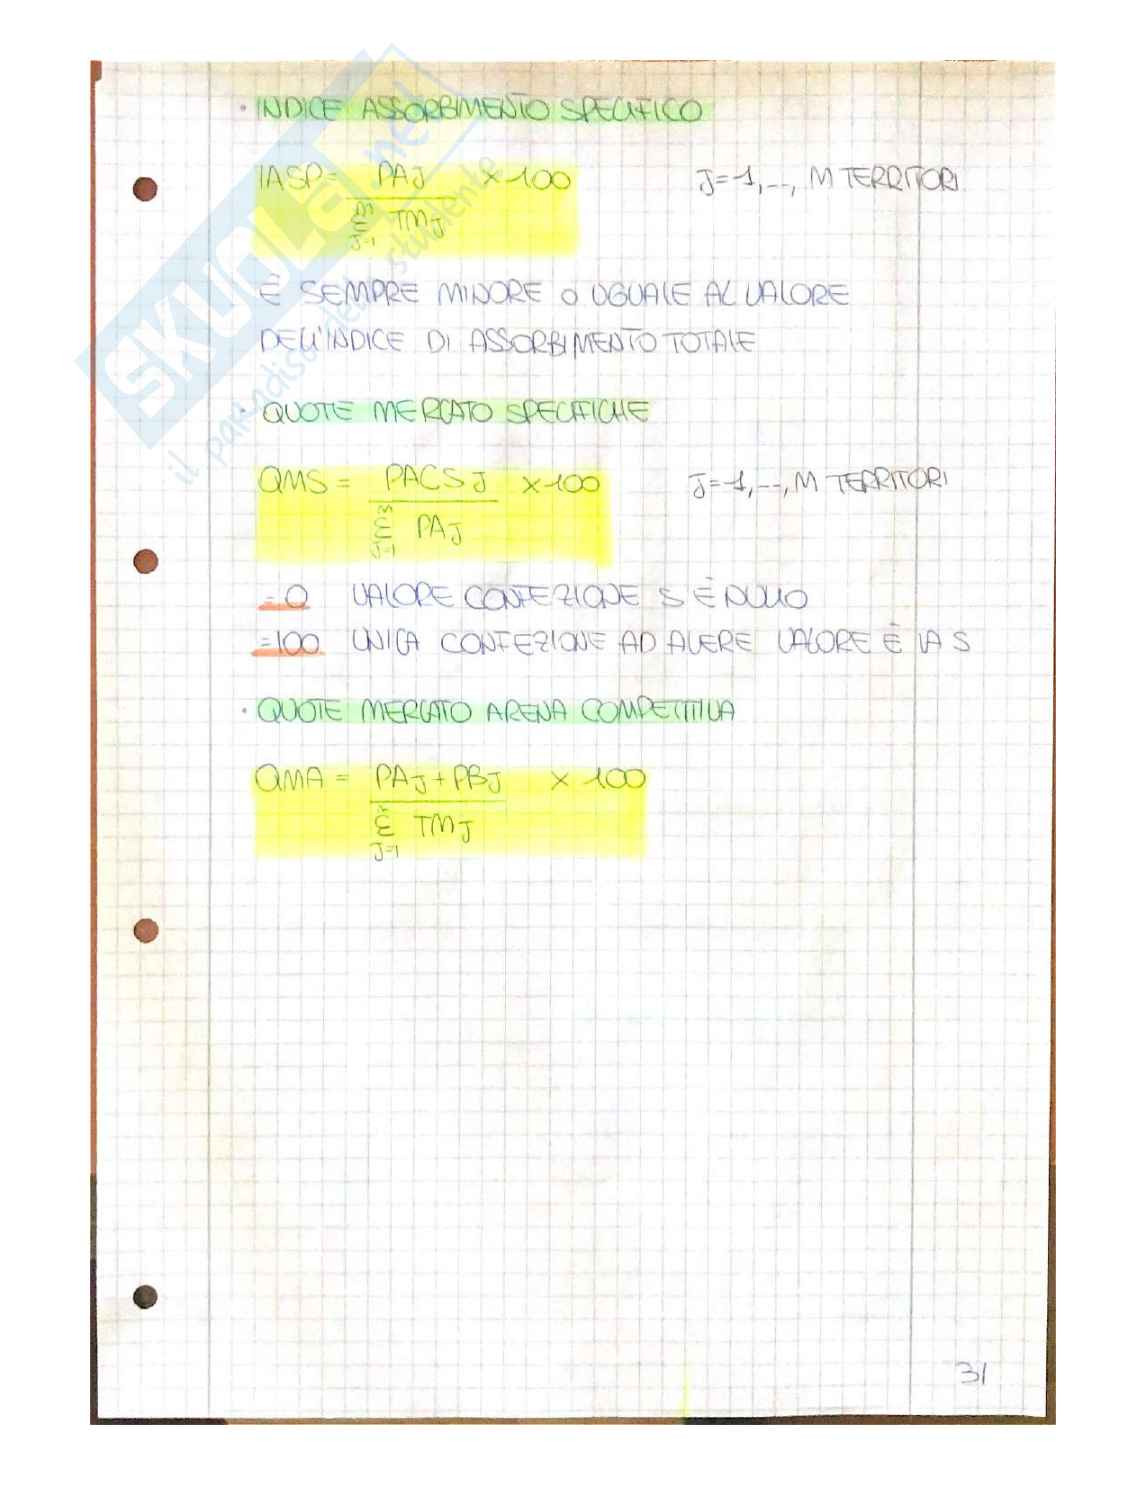 · INDICE ASSORBIMENTO SPECIFICO
IASP = PAJ / Σ J=1 m TMJ × 100 J=1,--, M TERRITORI
È SEMPRE MINORE O UGUALE AL VALORE
DELL'INDICE DI ASSORBIMENTO TOTALE
· QUOTE MERCATO SPECIFICHE
QMS = PACSJ / Σ J=1 m PAJ × 100 J=1,--, M TERRITORI
=0 VALORE CONFEZIONE S È NULLO
=100 UNICA CONFEZIONE AD AVERE VALORE È LA S
· QUOTE MERCATO ARENA COMPETITIVA
QMA = PAJ + PBJ / Σ J=1 TMJ × 100
31
SKUOLA.net
il paradiso dello studente